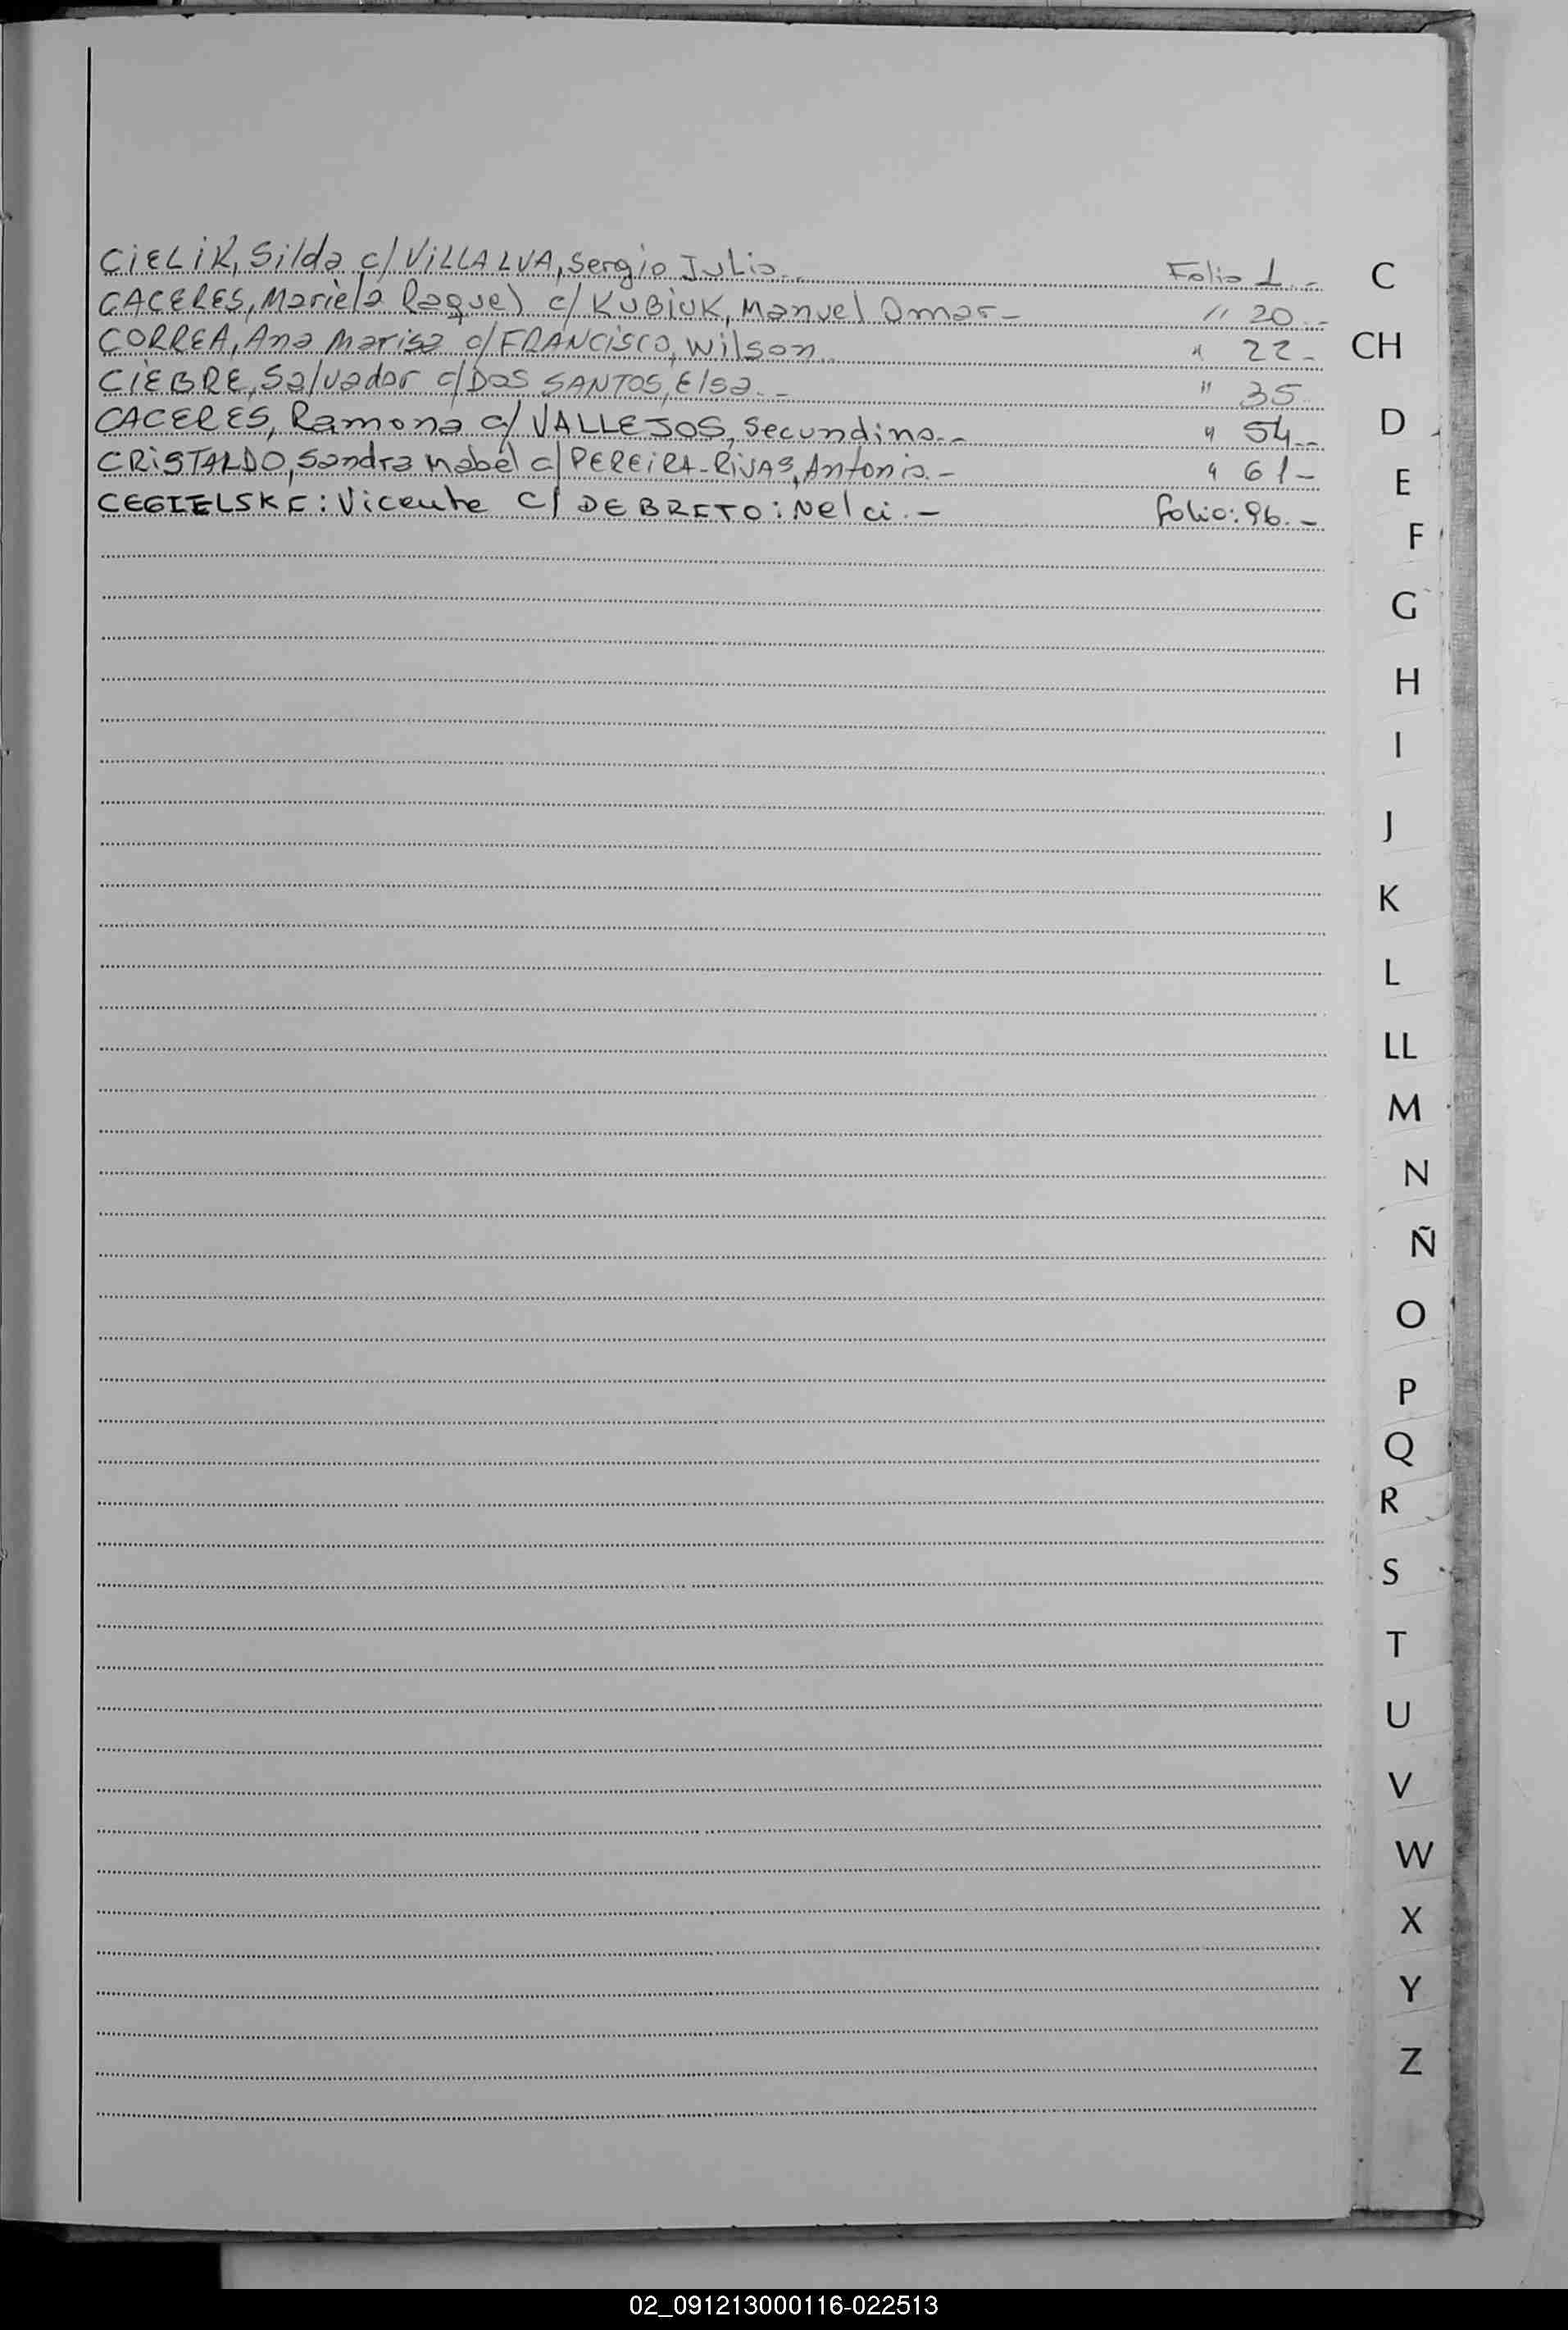 CiELiK, Silda c/ ViLLALVA, Sergio Julio.- Folio 1.-
CACERES, Mariela Raquel c/ KUBiUK, Manuel Omar- " 20.-
CORREA, Ana Marisa c/ FRANCiSCO, Wilson. " 22-
CiEBRE, Salvador c/ DOS SANTOS, Elsa.- " 35
CACERES, Ramona c/ VALLEJOS, Secundino.- " 54.-
CRiSTALDO, Sandra Mabel c/ PEREiRA-RiVAS, Antonio.- " 61-
CEGIELSKI: Vicente c/ DEBRITO: Nelci.- folio: 96.-
C
CH
D
E
F
G
H
I
J
K
L
LL
M
N
Ñ
O
P
Q
R
S
T
U
V
W
X
Y
Z
02_091213000116-022513